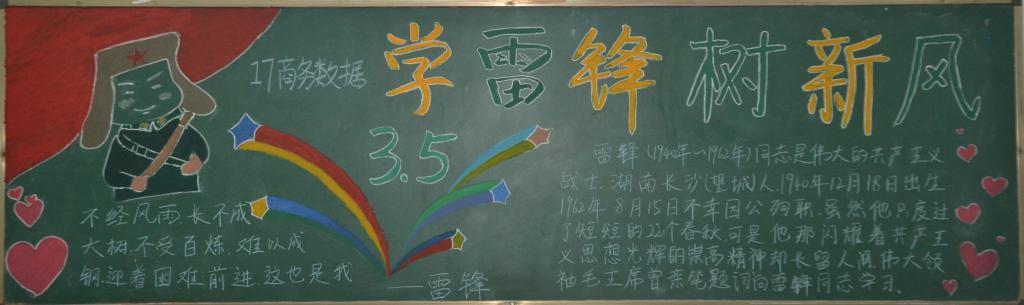 17商务数据
学雷锋树新风
3.5
不经风雨,长不成
大树,不受百炼,难以成
钢,迎着困难前进,这也是我
——雷锋
雷锋(1940年~1962年)同志是伟大的共产主义
战士.湖南长沙(望城)人.1940年12月18日出生
1962年8月15日不幸因公殉职.虽然他只度过
了短短的22个春秋.可是他那闪耀着共产主
义思想光辉的崇高精神却长留人间.伟大领
袖毛主席曾亲笔题词向雷锋同志学习.